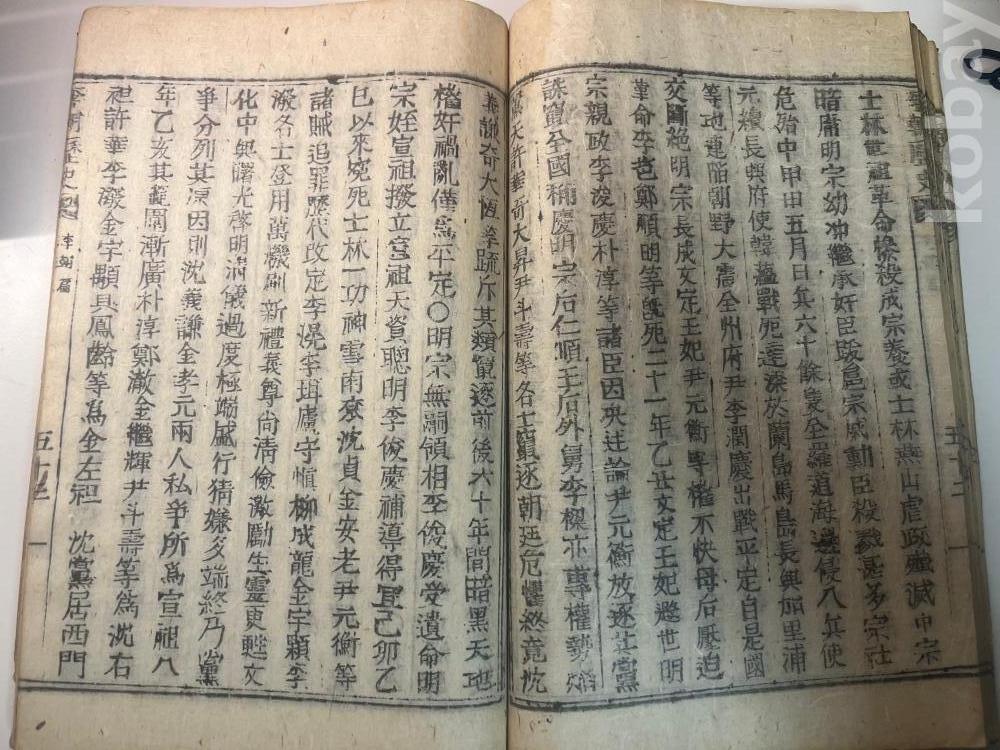 士林世祖革命慘殺成宗養成士林燕山虐政殲滅中宗
暗庸明宗幼冲繼承奸臣跋扈宗戚勳臣殺戮甚多宗社
危殆中甲申五月日兵六十餘艘全羅道海邊侵入兵使
元績長興府使韓蘊戰死達梁於蘭島馬島長興加里浦
等地連陷朝野大震全州府尹李潤慶出戰平定自是國
交斷絕明宗長成文定王妃尹元衡等權不快母后壓迫
革命李芑鄭順明等旣死二十一年乙丑文定王妃邀世明
宗親政李浚慶朴淳等諸臣因央迬論尹元衡放逐其黨
誅竄全國稱慶明宗后仁順王后外舅李樑亦專權勢焰
熏天許華奇大昇尹斗壽等各士竄逐朝廷危懼終竟沈
義謙奇大恒等疏斥其類竄逐前後六十年間暗黑天地
權奸禍亂僅爲平定〇明宗無嗣領相李俊慶受遺命明
宗姪宣祖擬立宣祖天資聰明李俊慶補導得宜己卯乙
巳以來寃死士林一切神雪南袞沈貞金安老尹元衡等
諸賊追罪歷代改定李滉李珥盧守愼柳成龍金宇顒李
潑各士登用萬機刷新禮義尊尙淸儉激勵生靈更甦文
化中興曙光啓明淸儀過度極端盛行猜嫌多端終乃黨
爭分列其源因則沈義謙金孝元兩人私爭所爲宣祖八
年乙亥其範圍漸廣朴淳鄭澈金繼輝尹斗壽等爲沈右
袒許華李潑金宇顒具鳳齡等爲金左袒 沈黨居西門
李朝歷史 李朝篇 五十三
kobay